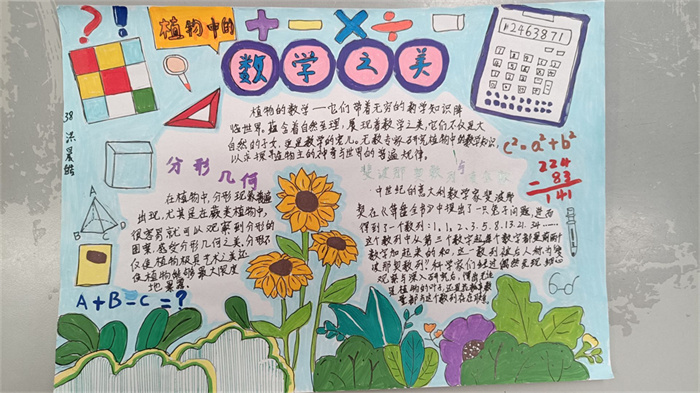 植物中的
数学之美
2463871
38 洪晨皓
植物的数学一它们带着无穷的数学知识降
临世界,蕴含着自然至理,展现着数学之美,它们不仅是大
自然的子女,更是数学的宠儿。无数专家研究植物中的数学知识,
以来探寻植物的神奇与世界的普遍规律。
c²=a²+b²
224
- 83
141
分形几何
在植物中,分形现象普遍
出现,尤其是在蕨类植物中,
很容易就可以观察到分形的
图案,感受分形几何之美,分形不
仅使植物极具艺术之美还
使植物能够最大限度
地
A
B
C
D
A+B=C=?
斐波那契数列
中世纪的意大利数学家斐波那
契在《算盘全书》中提出了一只兔子问题,进而
得到了一个数列:1,1,2,3,5,8,13,21,34……
这个数列中从第三个数字起每个数字都是前两个
数字加起来的和,这一数列被后人称为斐
波那契数列?科学家们经过偶然发现
观察与深入研究后,
植物的叶子,还是花瓣等数
量都与这个数列存在联系。